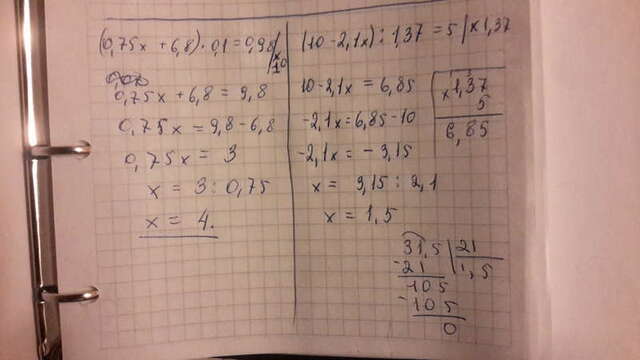 (0,75x + 6,8) · 0,1 = 0,98 / x10
0,75x + 6,8 = 9,8
0,75x = 9,8 - 6,8
0,75x = 3
x = 3 : 0,75
x = 4.
(10 - 2,1x) : 1,37 = 5 / x1,37
10 - 2,1x = 6,85
-2,1x = 6,85 - 10
-2,1x = - 3,15
x = 3,15 : 2,1
x = 1,5
x 1,37
5
6,85
31,5 | 21
- 21 | 1,5
105
- 105
0